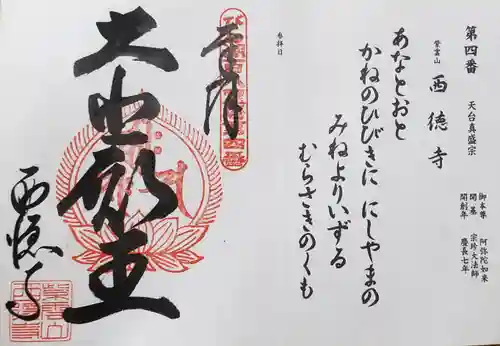 第四番　天台真盛宗
紫雲山　西徳寺
御本尊　阿弥陀如来
開基　宗珍大法師
開創年　慶長七年
あなとおと
かねのひびきに にしやまの
みねよりいずる
むらさきのくも
参拝日
奉拝
西徳寺